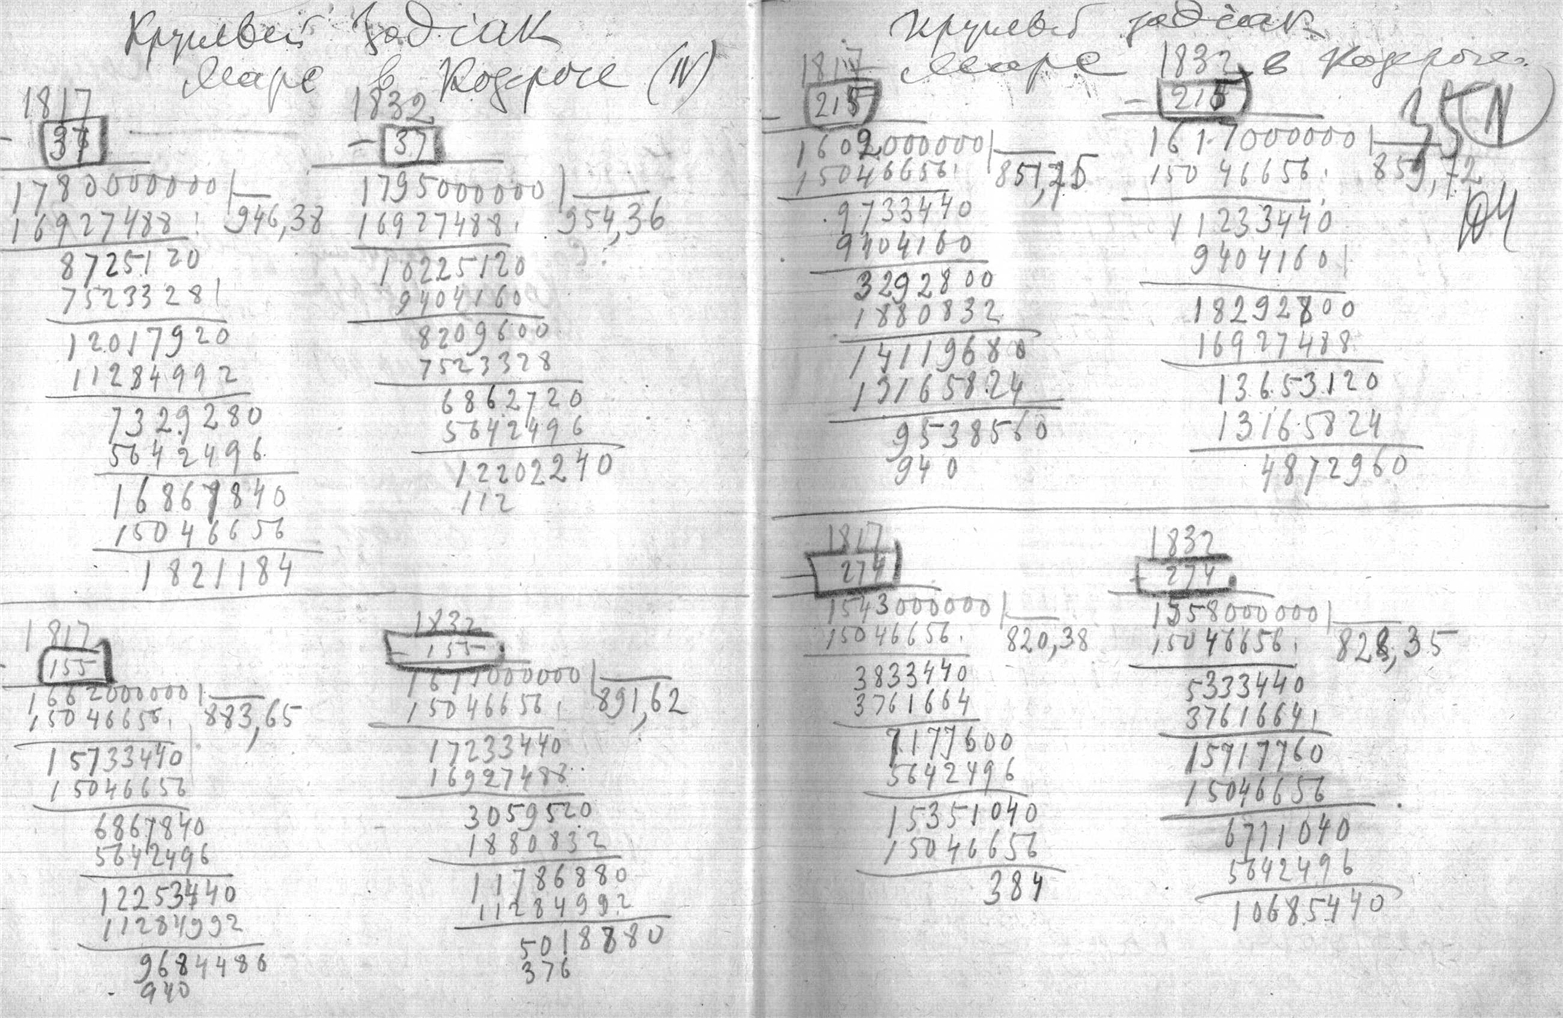 Круглый Зодіак
Марс в Козероге (IV)
1817
37
1780000000
16927488
946,38
8725120
7523328
12017920
11284992
7329280
5642496
16867840
15046656
1821184
1832
- 37
1795000000
16927488
954,36
10225120
9404160
8209600
7523328
6862720
5642496
12202240
112
1817
155
1662000000
15046656
883,65
15733440
15046656
6867840
5642496
12253440
11284992
9684486
940
1832
- 155
1677000000
15046656
891,62
17233440
16927488
3059520
1880832
11786880
11284992
5018880
376
Круглый зодіак
Марс в Козероге
1817
- 215
1602000000
15046656
851,75
9733440
9404160
3292800
1880832
14119680
13165824
9538560
940
1832
- 215
1617000000
15046656
859,72
11233440
9404160
18292800
16927488
13653120
13165824
4872960
1817
- 274
1543000000
15046656
820,38
3833440
3761664
7177600
5642496
15351040
15046656
384
1832
- 274
1558000000
15046656
828,35
5333440
3761664
15717760
15046656
6711040
5642496
10685440